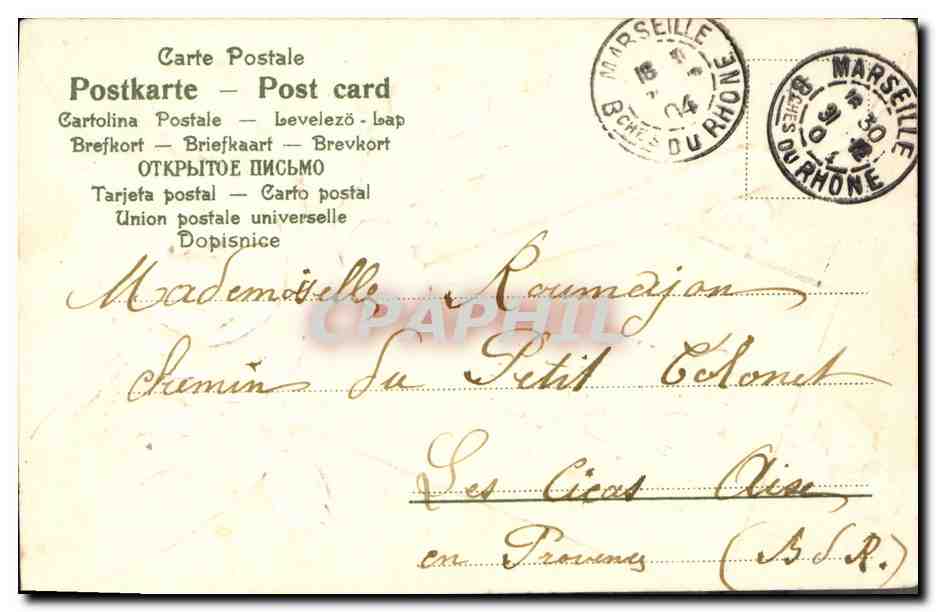 Carte Postale
Postkarte — Post card
Cartolina Postale — Levelező-Lap
Brefkort — Briefkaart — Brevkort
ОТКРЫТОЕ ПИСЬМО
Tarjeta postal — Carto postal
Union postale universelle
Dopisnice
MARSEILLE
18
04
BCHES DU RHONE
MARSEILLE
30
31
04
BCHES DU RHONE
CPAPHIL
Mademoiselle Roumejon
chemin du Petit Tolonet
Les Aix
en Provence (B d R.)